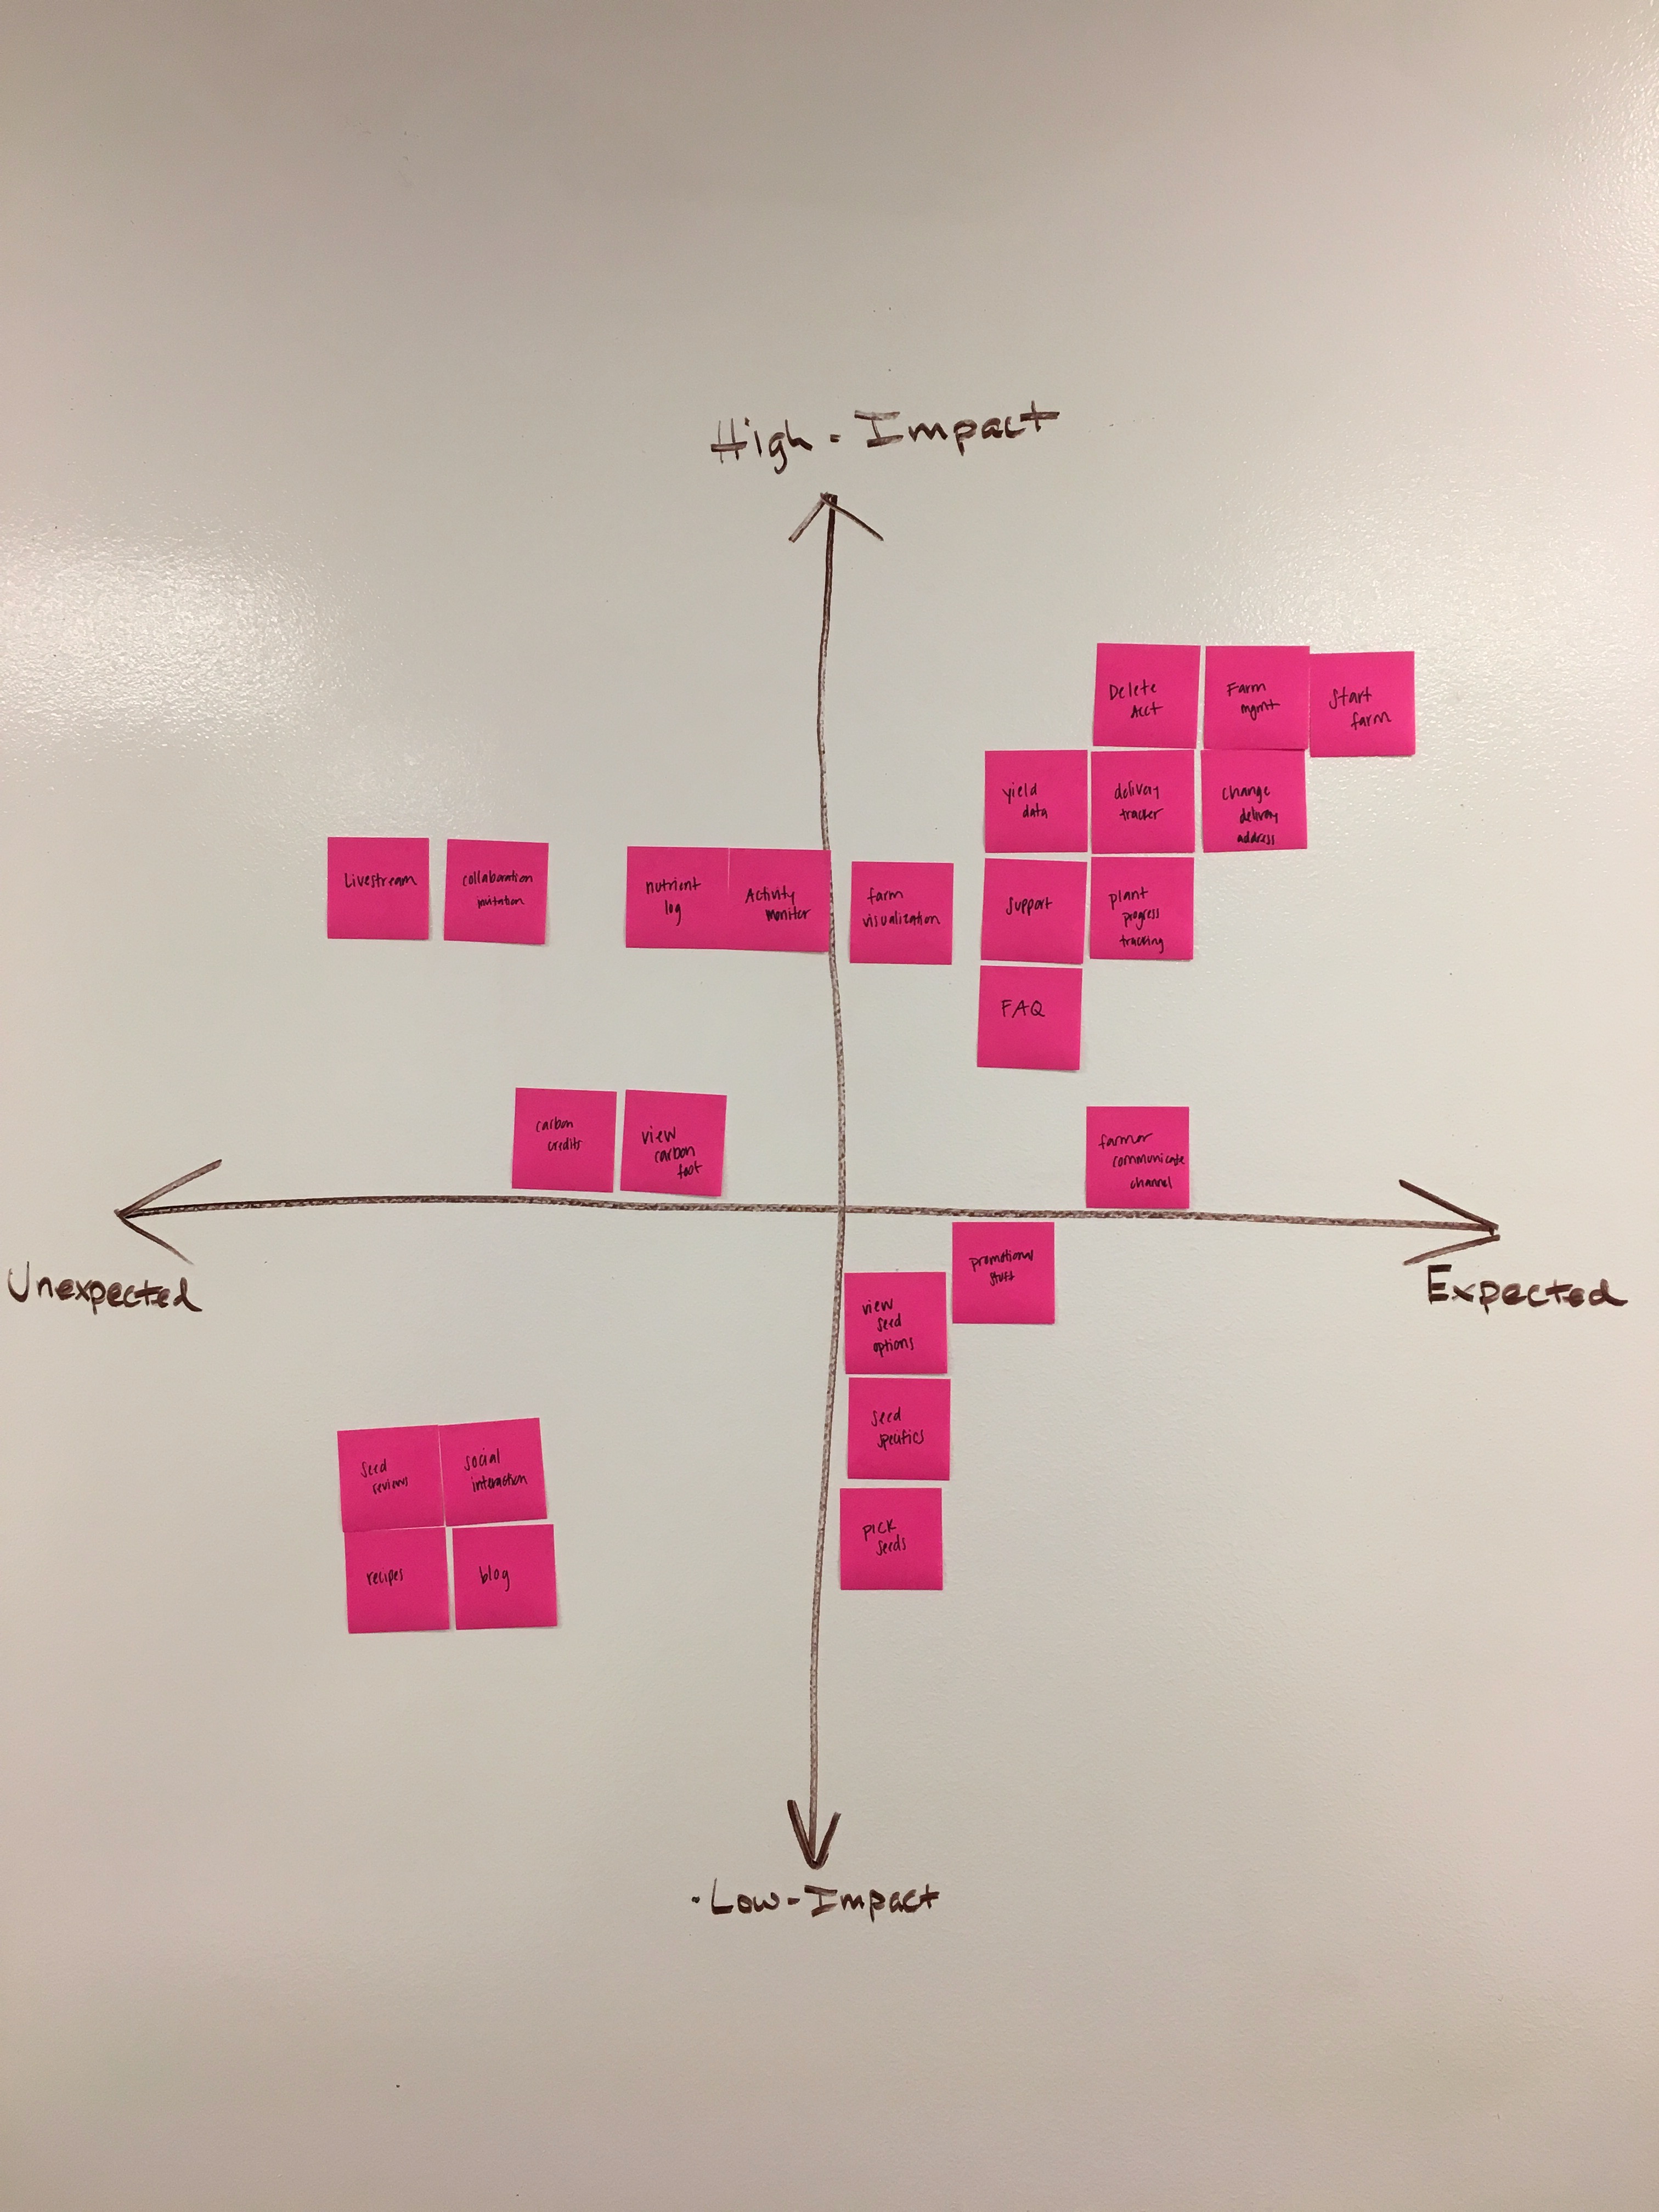 High - Impact
Delete
Acct
Farm
mgmt
Start
farm
yield
data
delivery
tracker
change
delivery
address
Livestream
collaboration
invitation
nutrient
log
Activity
monitor
farm
visualization
support
plant
progress
tracking
FAQ
carbon
credits
view
carbon
foot
farmer
communicate
channel
Unexpected
Expected
promotional
stuff
view
seed
options
seed
specifics
seed
reviews
social
interaction
pick
seeds
recipes
blog
Low-Impact